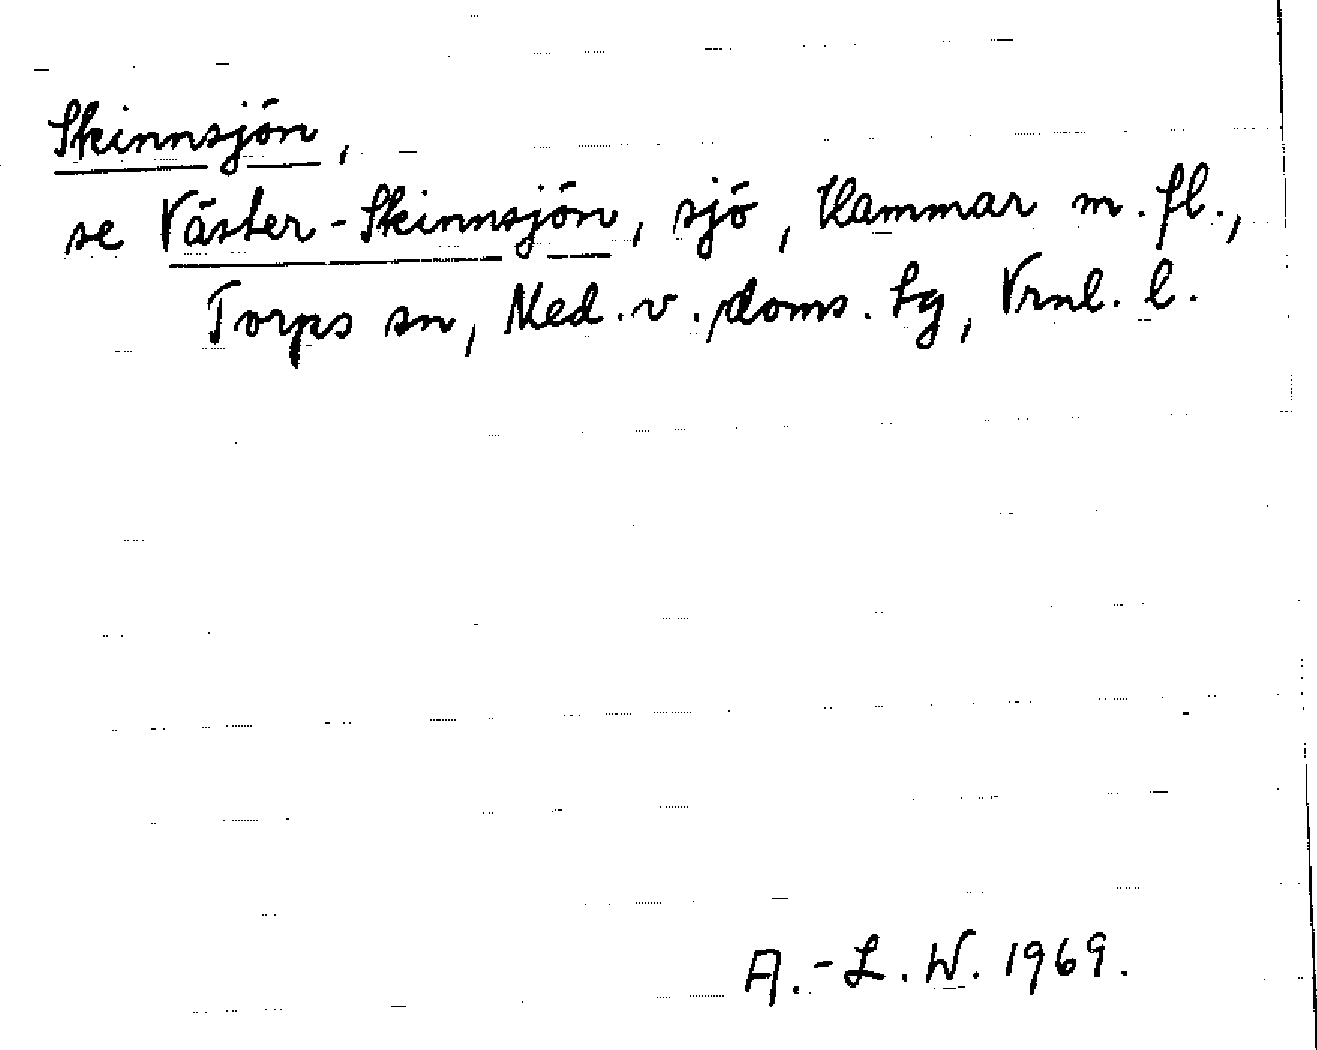 Skinnsjön,
se Väster-Skinnsjön, sjö, Hammar m. fl.,
Torps sn, Med. v. doms. tg, Vrnl. l.
A.-L. W. 1969.